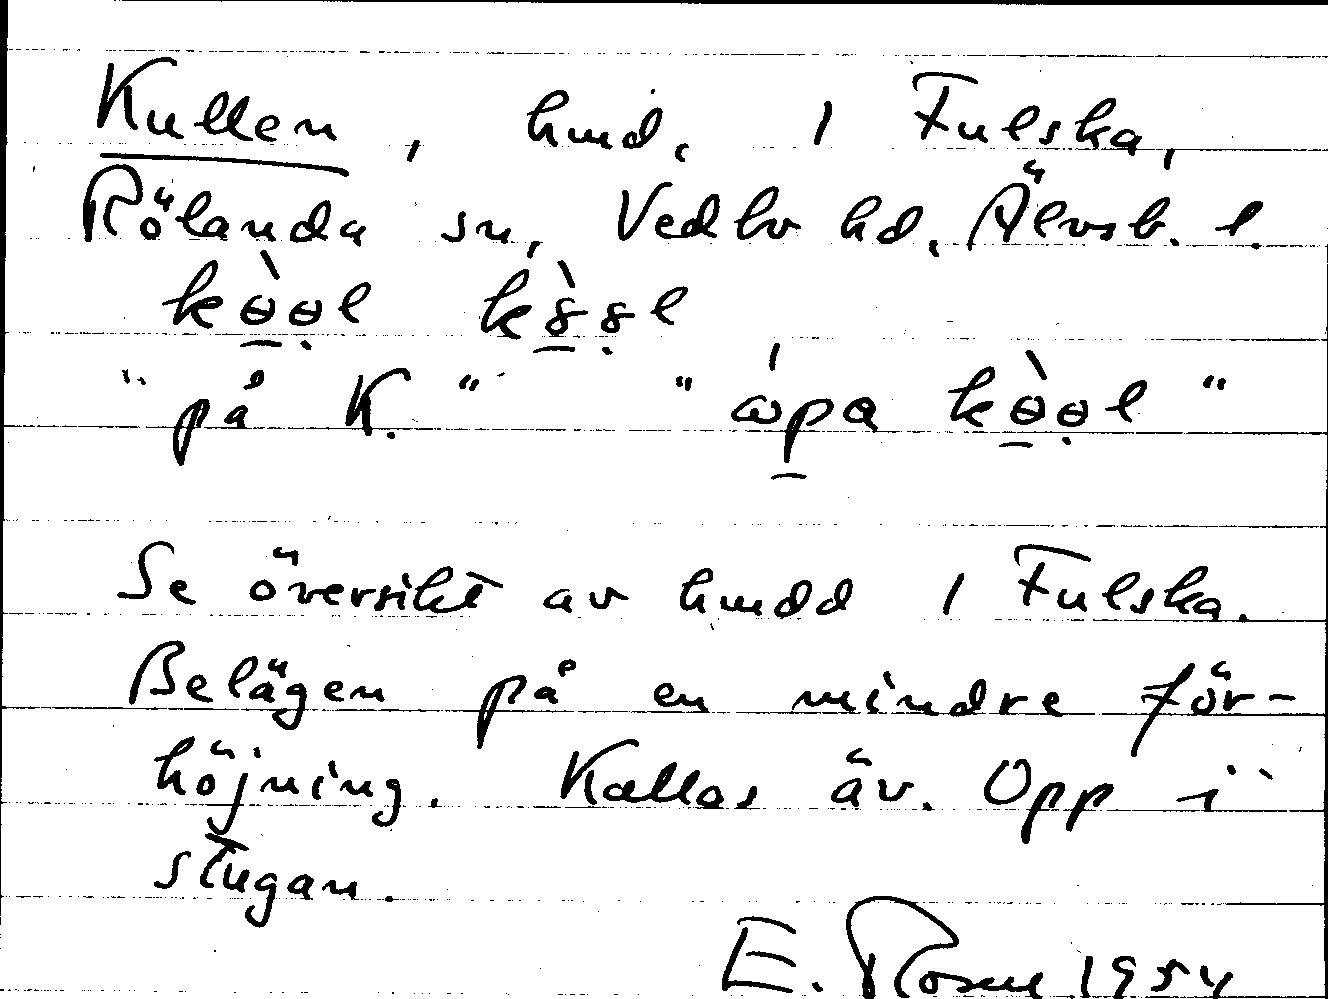 Kullen, hmd, 1 Fulska,
Rölanda sn, Vedbo hd, Älvsb. l.
kɵ̀ɵ̣l k8̀8̣l
"på K." "ώpa kɵ̀ɵ̣l"
Se översikt av hmdd 1 Fulska.
Belägen på en mindre för-
höjning. Kallas äv. Opp i
stugan.
E. Rosen 1954